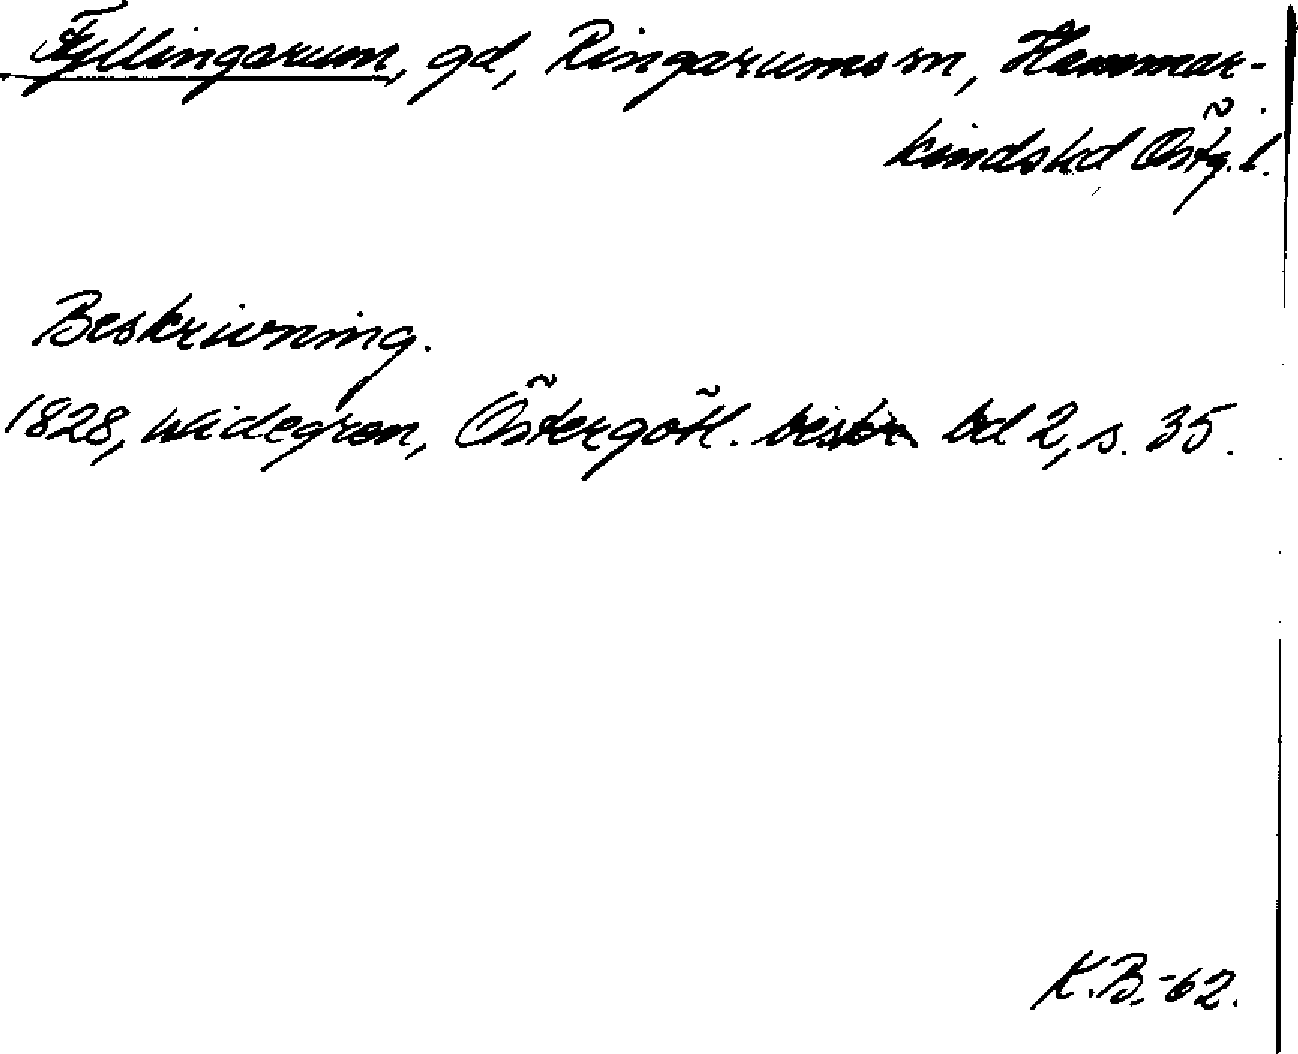 Fyllingarum, gd, Ringarums sn, Hammar-
kinds hd Östg. l.
Beskrivning.
1828, Widegren, Östergötl. beskr bd 2, s. 35.
K.B.-62.